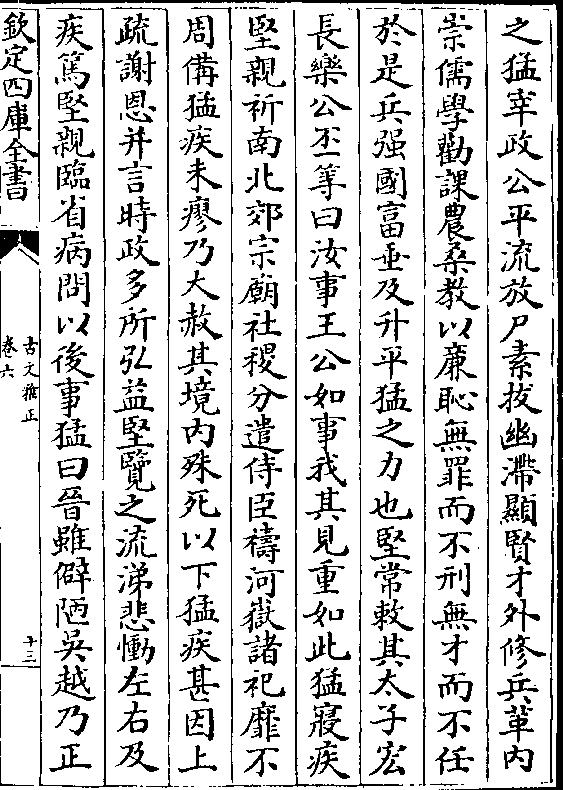 之猛宰政公平流放尸素拔幽滯顯賢才外修兵革内
崇儒學勸課農桑教以廉恥無罪而不刑無才而不任
於是兵强國富垂及升平猛之力也堅常敕其太子宏
長樂公丕等曰汝事王公如事我其見重如此猛寢疾
堅親祈南北郊宗廟社稷分遣侍臣禱河嶽諸祀靡不
周備猛疾未瘳乃大赦其境内殊死以下猛疾甚因上
疏謝恩并言時政多所弘益堅覽之流涕悲慟左右及
疾篤堅親臨省病問以後事猛曰晉雖僻陋吳越乃正
欽定四庫全書
古文雅正
卷六
十三